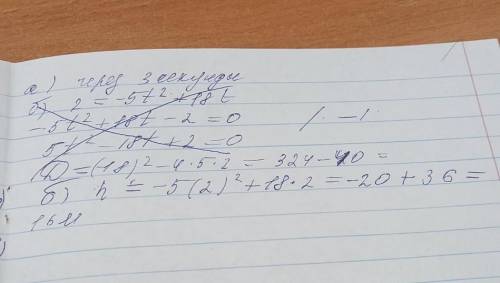 а) через 3 секунды
б) 2 = -5t² + 18t
-5t² + 18t - 2 = 0 / · -1
5t² - 18t + 2 = 0
D = (18)² - 4·5·2 = 324 - 40 =
б) h = -5(2)² + 18·2 = -20 + 36 =
16 м